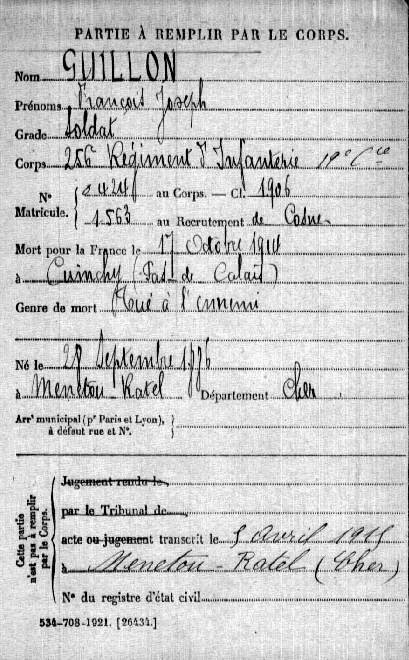 PARTIE À REMPLIR PAR LE CORPS.
Nom GUILLON
Prénoms François Joseph
Grade Soldat
Corps 256 Régiment d'Infanterie 19e Cie
N° Matricule. { 2424 au Corps. — Cl. 1906
1563 au Recrutement de Cosne
Mort pour la France le 17 Octobre 1914
à Cuinchy (Pas-de Calais)
Genre de mort Tué à l'ennemi
Né le 28 Septembre 1886
à Menetou Ratel Département Cher
Arrt municipal (pr Paris et Lyon), à défaut rue et N°. }
Cette partie n'est pas à remplir par le Corps. {
Jugement rendu le
par le Tribunal de
acte ou jugement transcrit le 5 Avril 1915
à Menetou-Ratel (Cher)
N° du registre d'état civil
534-708-1921. [26434.]